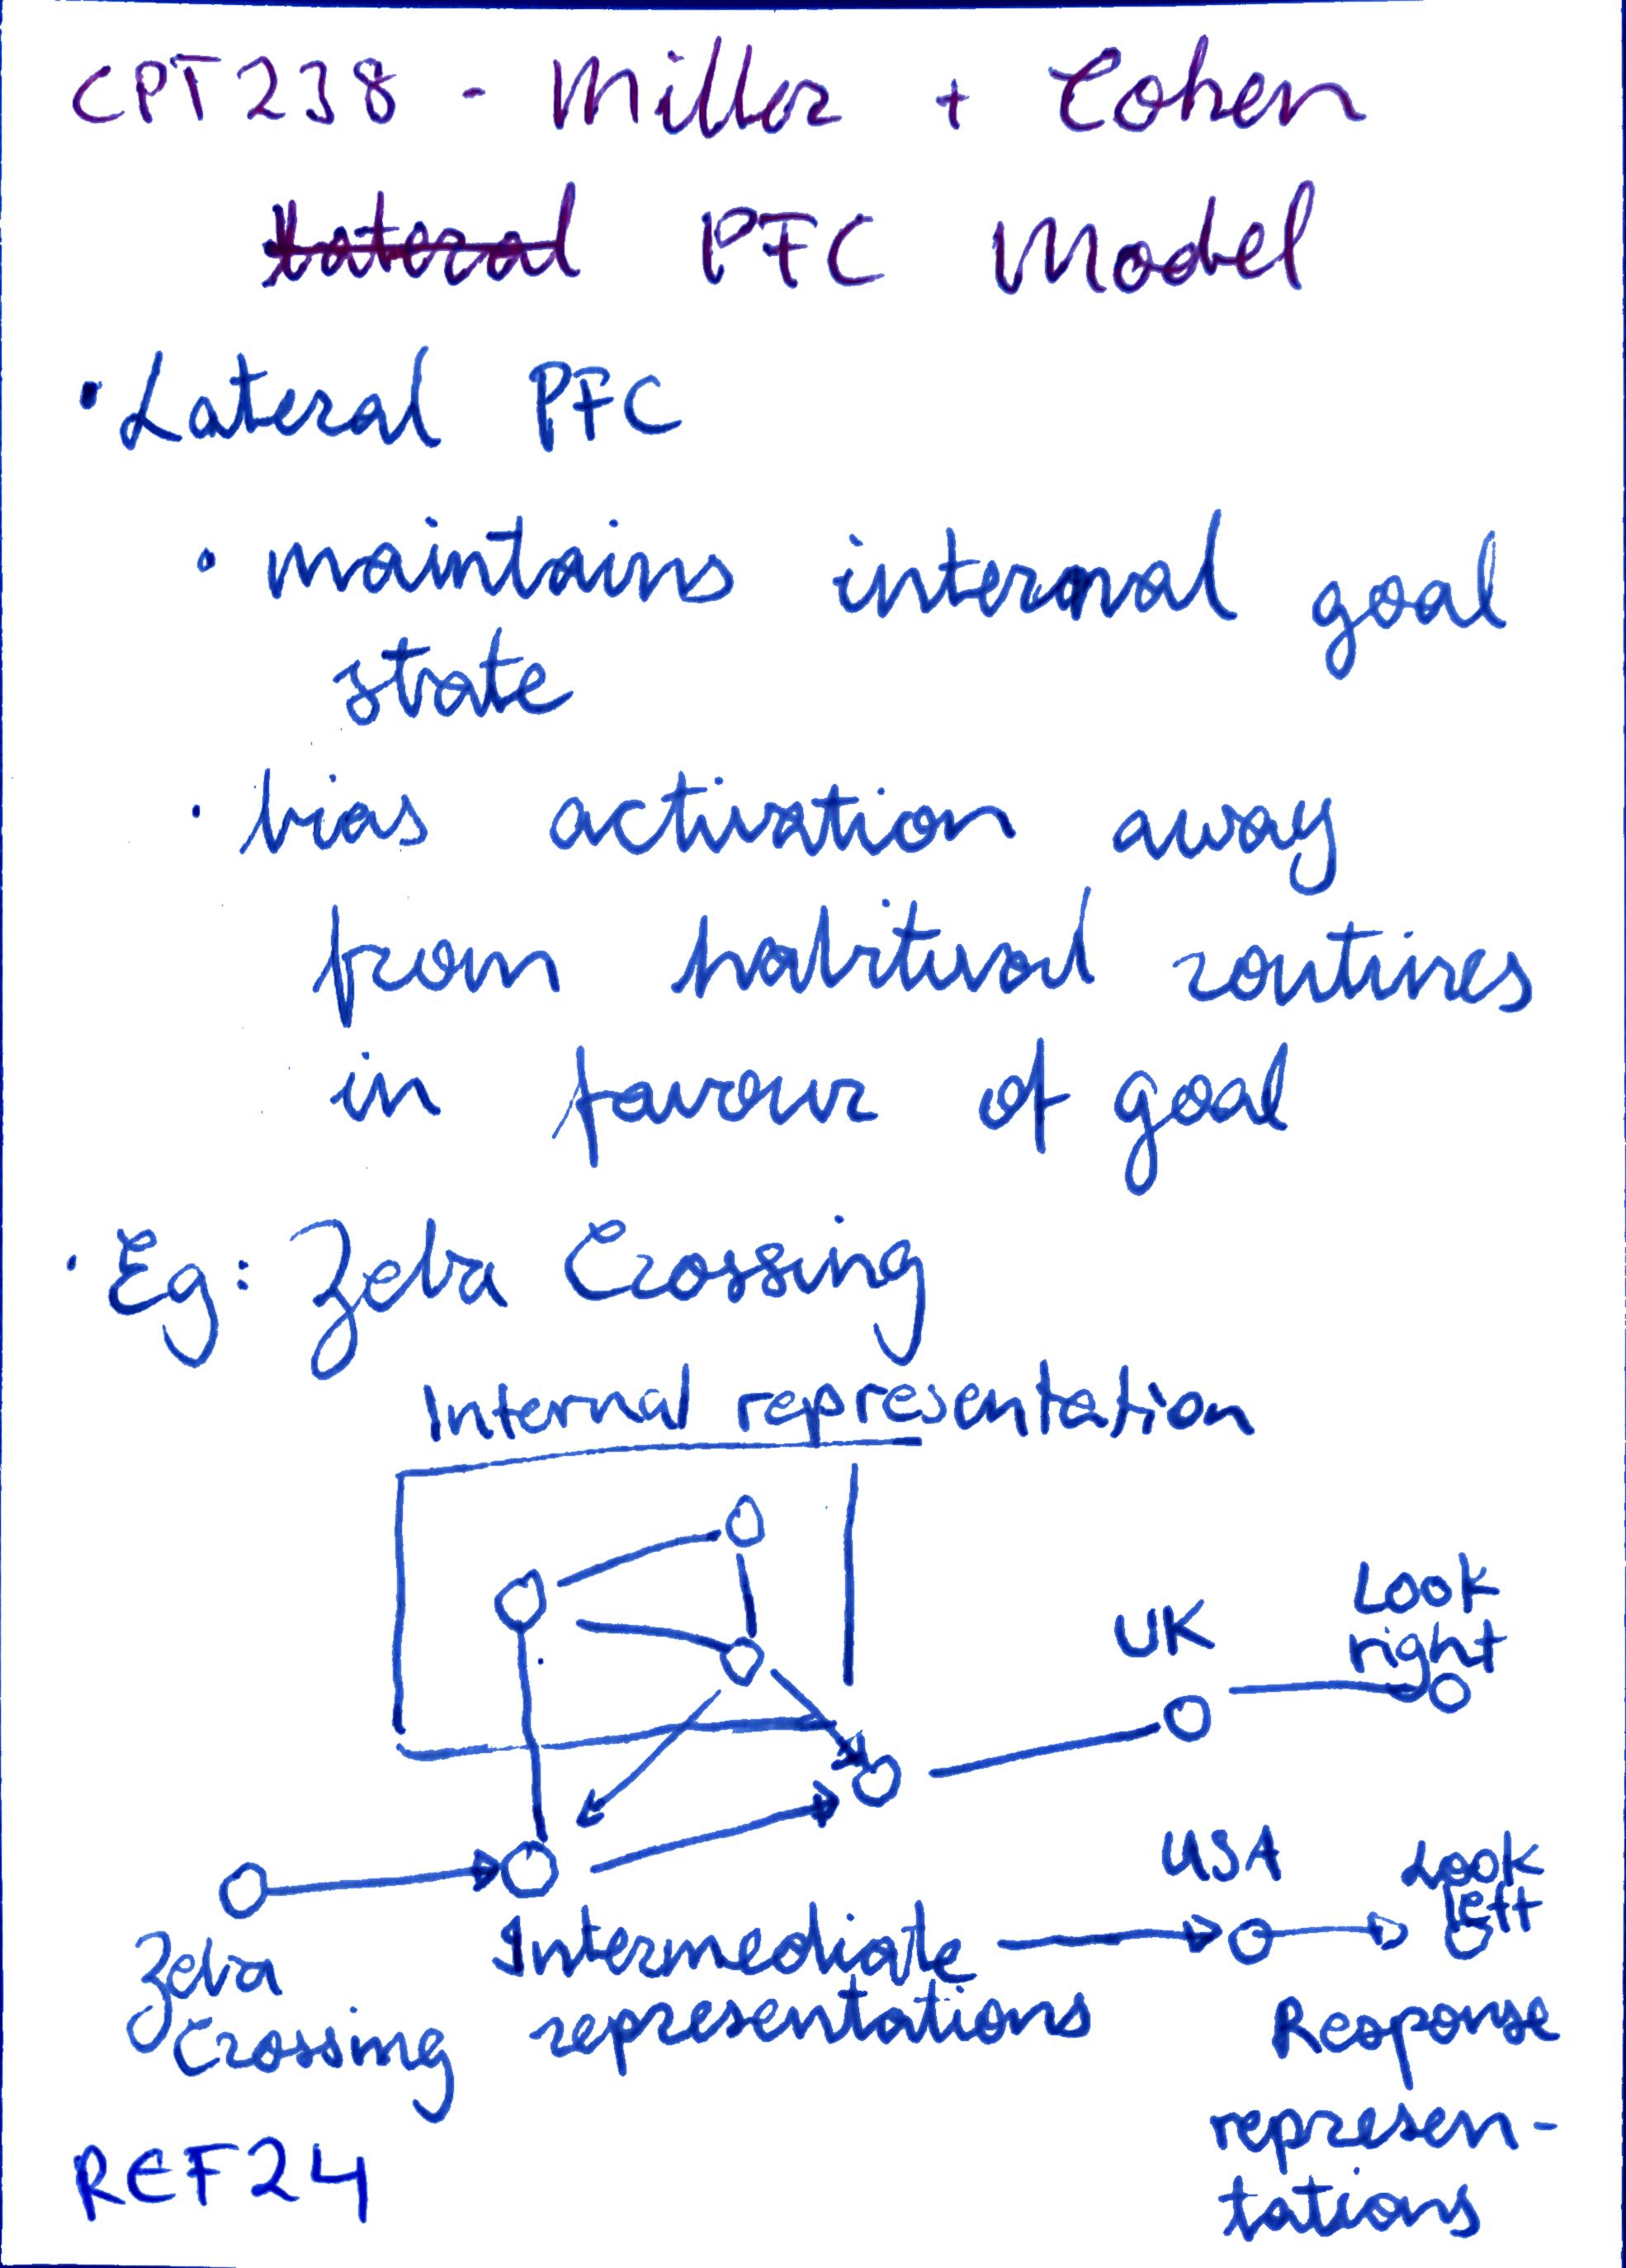 CPT238 - Miller + Cohen
Lateral PFC Model
• Lateral PFC
• maintains internal goal
state
• bias activation away
from habitual routines
in favour of goal
• Eg: Zebra Crossing
Internal representation
Look
UK right
USA Look
left
Zebra Intermediate
Crossing representations Response
represen-
tations
REF24